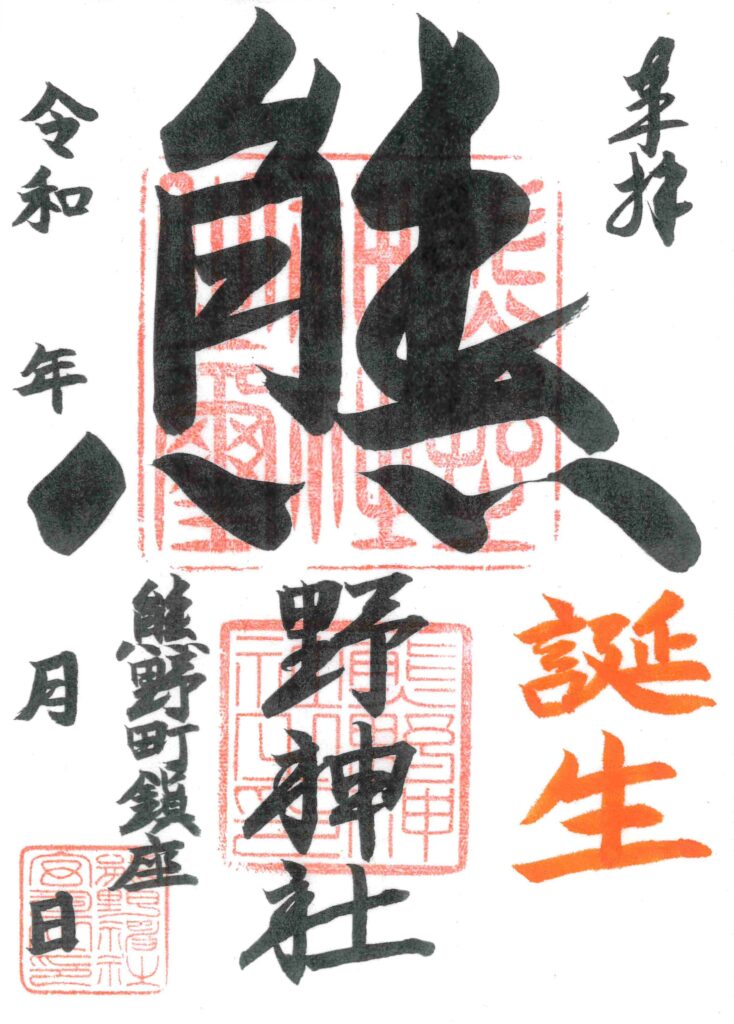 奉拝
誕生
熊野神社
熊野町鎮座
令和 年 月 日